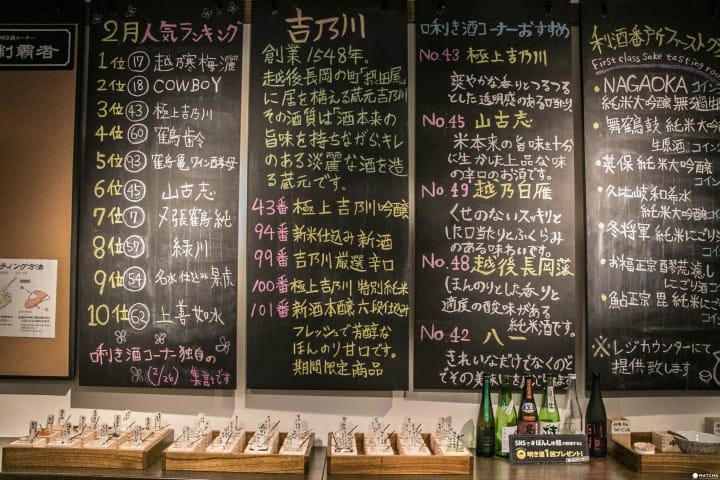 利き酒コーナー
制覇者
2月人気ランキング
1位 ⑰ 越乃寒梅 灑
2位 ⑱ COWBOY
3位 ㊸ 極上吉乃川
4位 60 鶴齢
5位 93 鶴亀 ワイン酵母
6位 ㊺ 山古志
7位 ⑦ 〆張鶴 純
8位 57 緑川
9位 54 名水仕込み 景虎
10位 62 上善如水
唎き酒コーナー独自の
(2/26) 集計です
吉乃川
創業1548年。
越後長岡の町「摂田屋」
に居を構える蔵元吉乃川
その酒質は「酒本来の
旨味を持ちながらキレ
のある淡麗な酒を造
る蔵元です。
43番 極上吉乃川吟醸
94番 新米仕込み新酒
99番 吉乃川厳選辛口
100番 極上吉乃川 特別純米
101番 新酒本醸造六段仕込み
フレッシュで芳醇な
ほんのり甘口です。
期間限定商品
唎き酒コーナーおすすめ
No.43 極上吉乃川
爽やかな香りとつるつる
とした透明感のある口当り。
No.45 山古志
米本来の旨味を十分
に生かした上品な味
の辛口のお酒です。
No.49 越乃白雁
くせのないスッキリと
した口当りとふくらみ
のある味わいです。
No.48 越後長岡藩
ほんのりとした香りと
適度の酸味がある
純米酒です。
No.42 八一
きれいなだけでなくのど
でその美味
利き酒番外ファースト
First class Sake tasting
NAGAOKA コイン
純米大吟醸無濾過生
舞鶴鼓 純米大吟
生原酒 コイン
英保 純米大吟醸
コイン
久比岐 和希水
純米大吟醸 コイン
冬将軍 純米にごり
コイン
お福正宗
にごり酒 コイン
鮎正宗 毘 純米にご
コイン
※レジカウンターにて
提供致します
ティング方法
SNSで#ぽんしゅ館
唎き酒1回プレゼント!
MATCHA